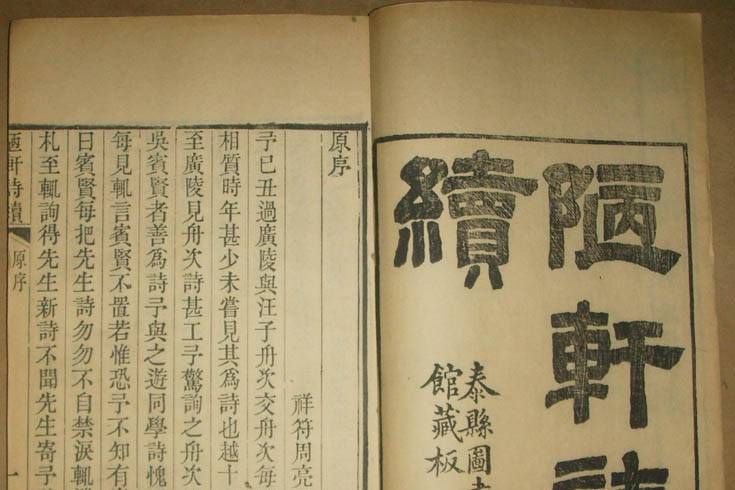 陋軒詩
續
泰縣圖書
館藏板
原序
祥符周亮
予已丑過廣陵與汪子舟次交舟次每
相質時年甚少未嘗見其爲詩也越十
至廣陵見舟次詩甚工予驚詢之舟次
吳賓賢者善爲詩予與之遊同學詩愧
每見輒言賓賢不置若惟恐予不知有
日賓賢每把先生詩勿勿不自禁淚輒
札至輒詢得先生新詩不聞先生寄予
陋軒詩續
原序
一